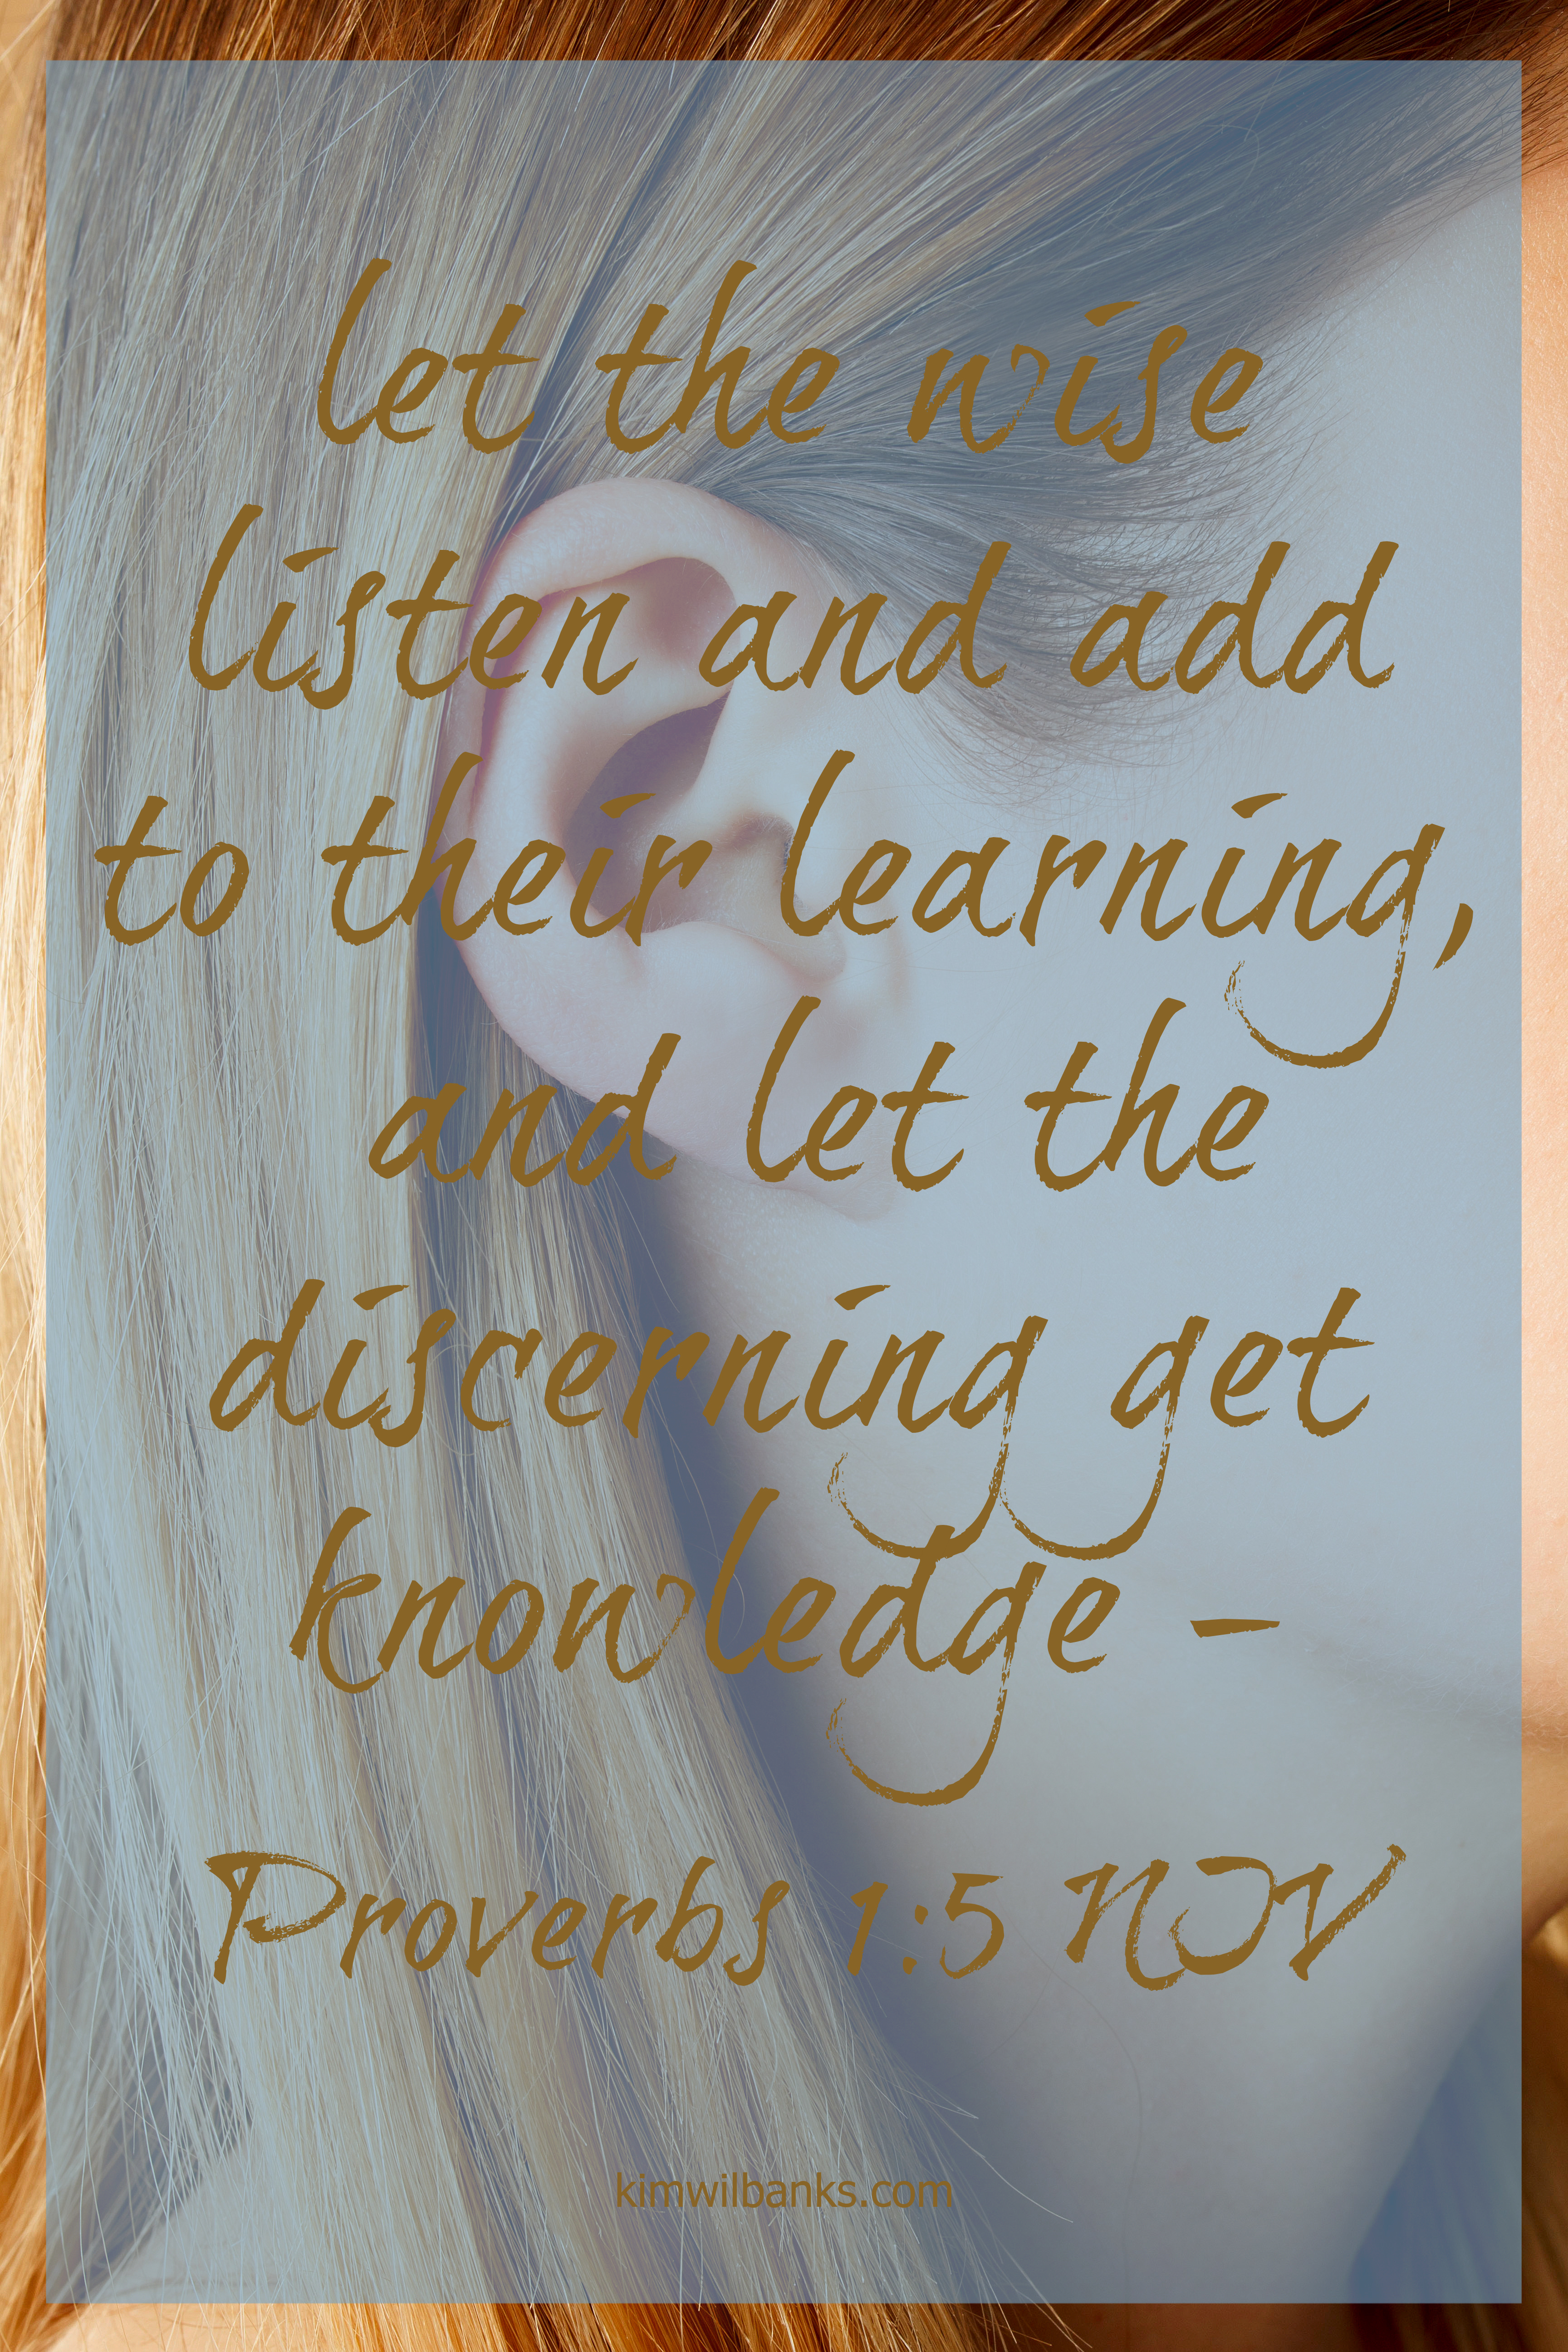 let the wise
listen and add
to their learning,
and let the
discerning get
knowledge -
Proverbs 1:5 NIV
kimwilbanks.com